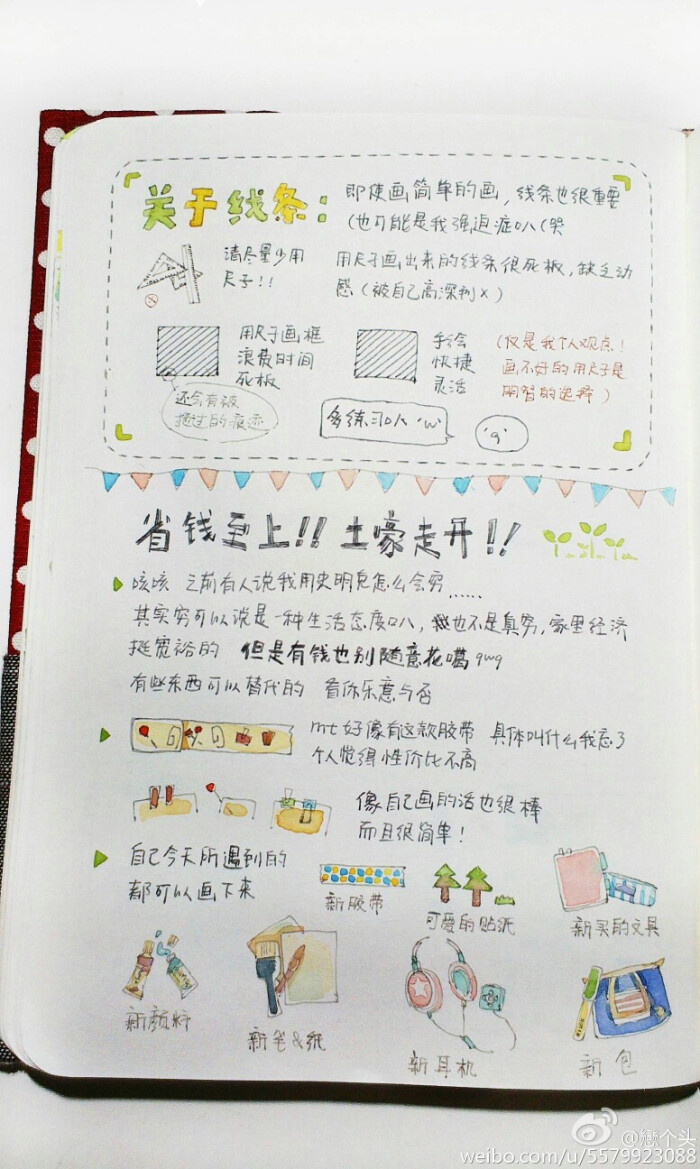 关于线条：
即使画简单的画，线条也很重要
（也可能是我强迫症吖（哭
请尽量少用
尺子！！
用尺子画出来的线条很死板，缺乏动
感（被自己高深到×）
用尺子画框
浪费时间
死板
手绘
快捷
灵活
（仅是我个人观点！
画不好的用尺子是
明智的选择）
还会有被
拖过的痕迹
多练习吖 'w'
省钱至上！！土豪走开！！
咳咳 之前有人说我用史明克怎么会穷……
其实穷可以说是一种生活态度吖，也不是真穷，家里经济
挺宽裕的 但是有钱也别随意花噶qwq
有些东西可以替代的 看你乐意与否
mt好像有这款胶带 具体叫什么我忘了
个人觉得性价比不高
像自己画的话也很棒
而且很简单！
自己今天所遇到的
都可以画下来
新胶带
可爱的贴纸
新买的文具
新颜料
新笔&纸
新耳机
新包
@戀个头
weibo.com/u/5579923088